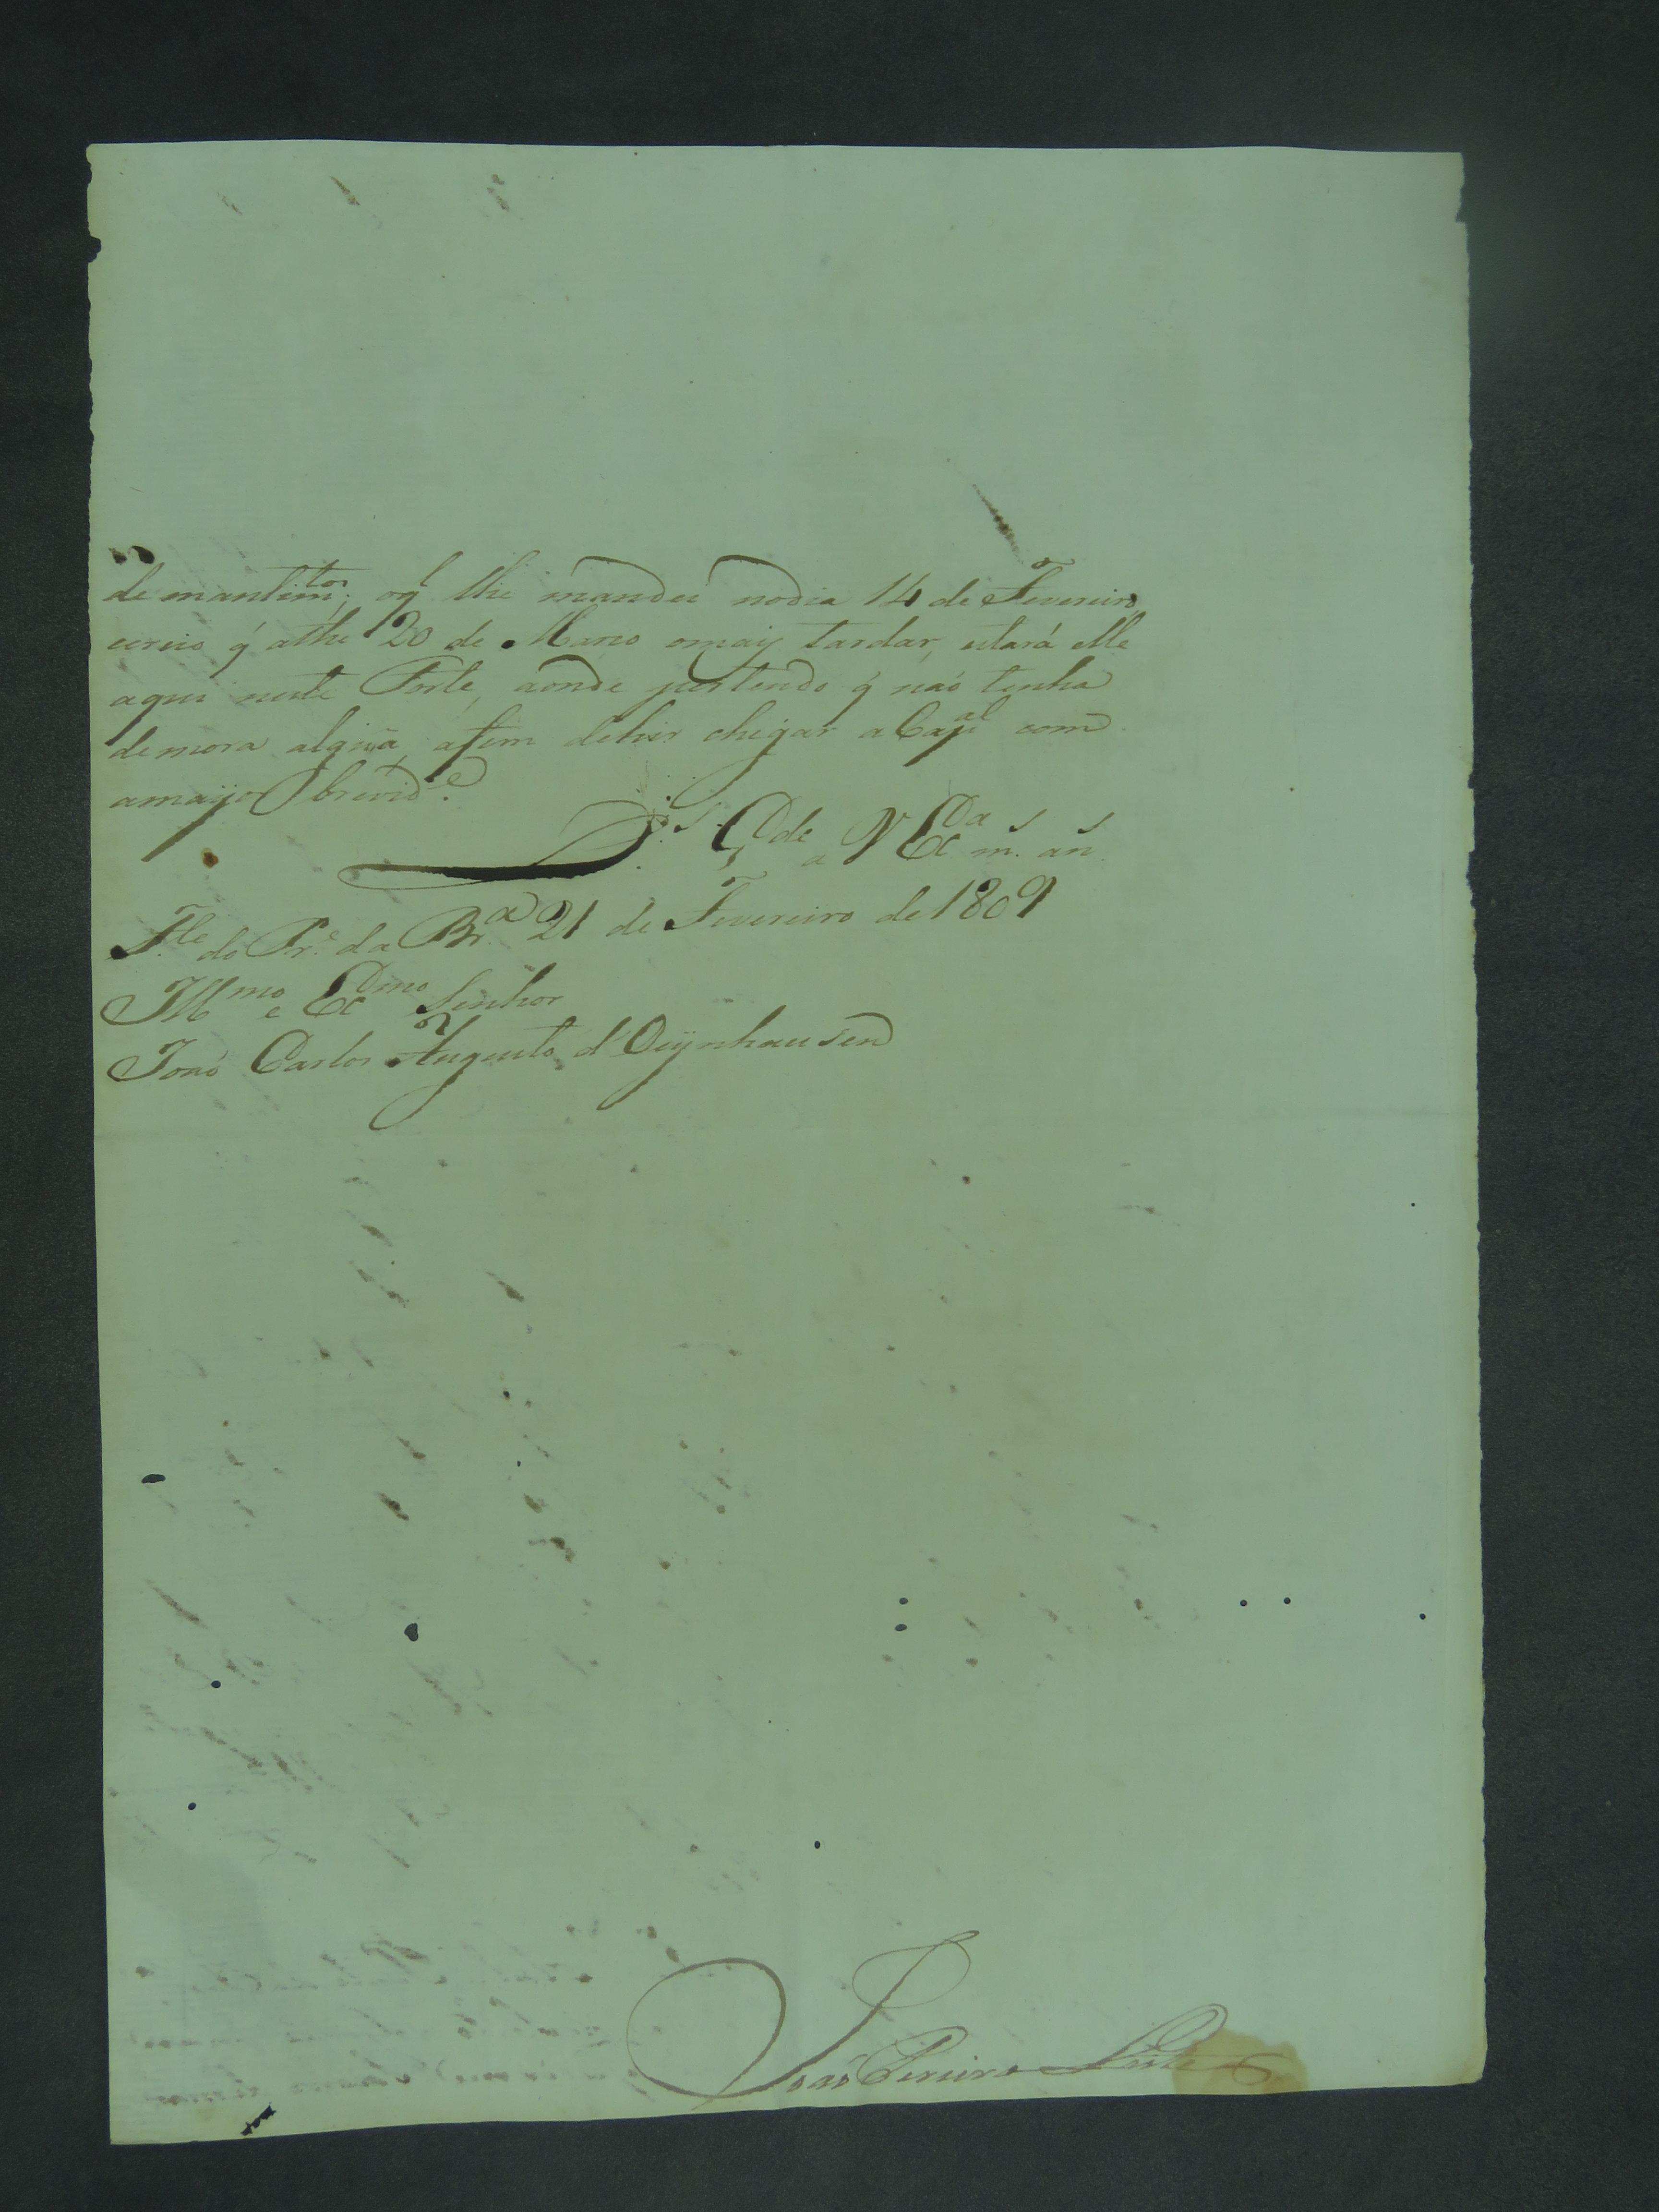 de mantim.tos, oq̃ lhe mandei nodia 14 de Fevereiro,
creio q̃ athe 20 de Março omaiz tardar, estará elle
aqui neste Forte, aonde pertendo q̃ naõ tenha
demora algũa, afim dehir chegar a Capal com
amayor brevid.e
D.s G.de a V Ex.a m.s an.s
F.te do Pr.e da Br.a 21 de Fevereiro de 1809
Illmo e Exmo Senhor
Joaõ Carlos Augusto d'Oeynhausen
Joaõ Pereira Leite